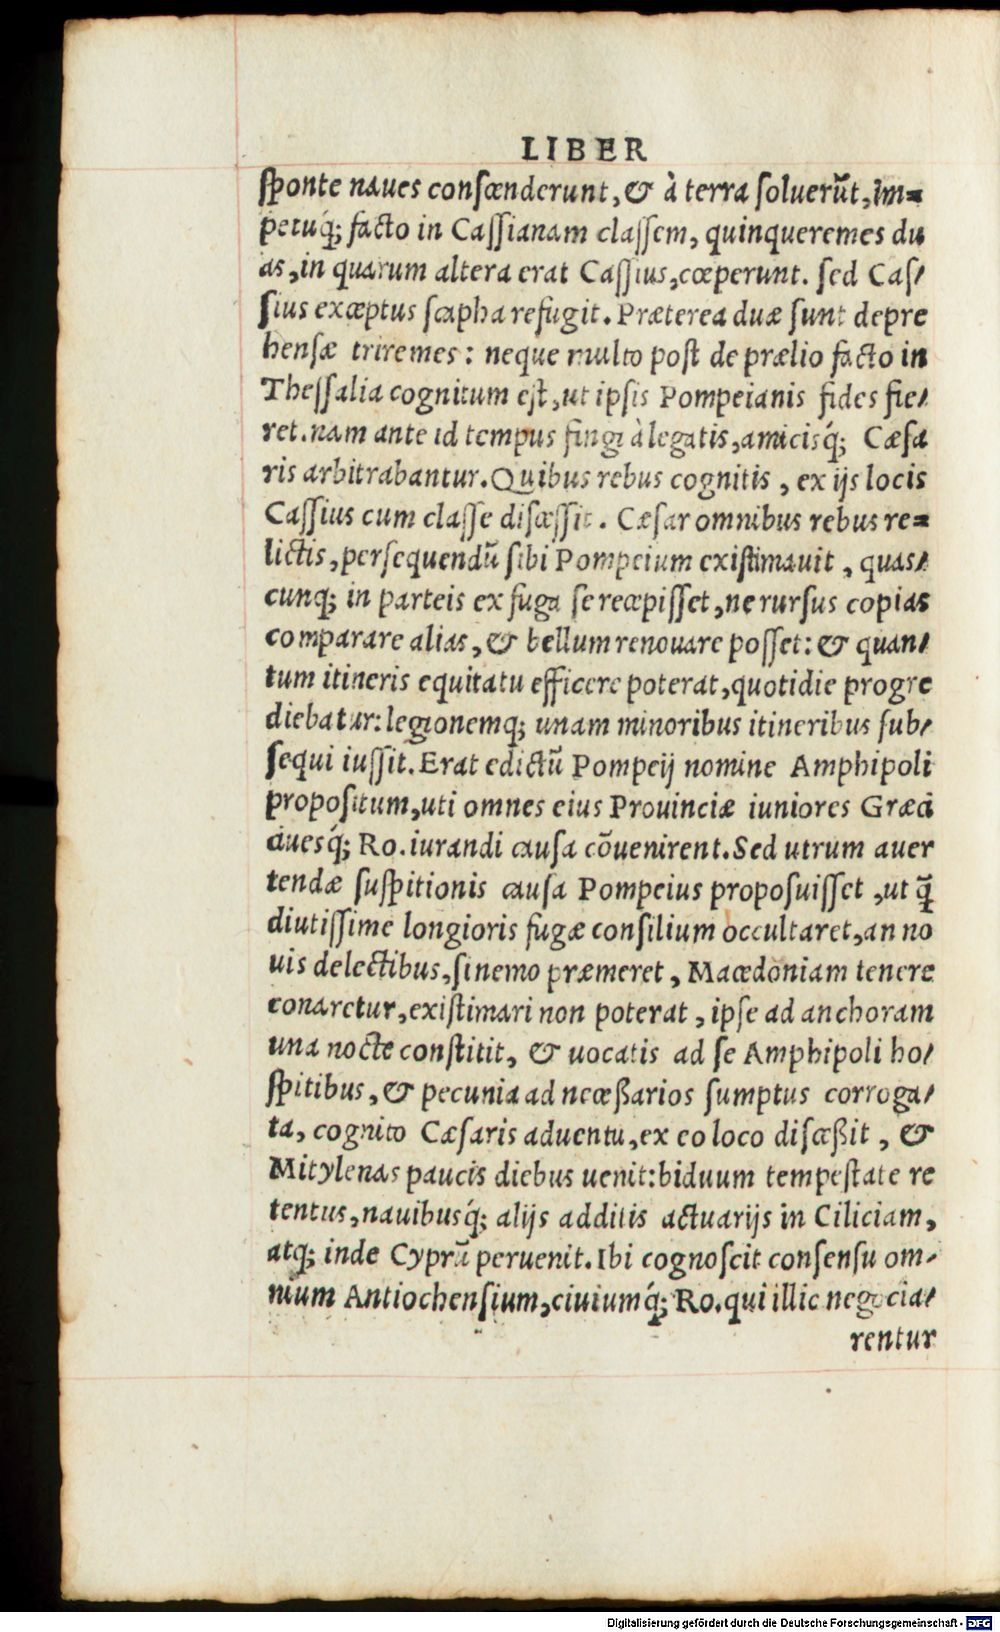 LIBER
ſponte naues conſcenderunt, & à terra ſoluerũt, Im=
petuq́; facto in Caſſianam claſſem, quinqueremes du
as, in quarum altera erat Caſſius, cœperunt. ſed Caſ/
ſius exceptus ſcapha refugit. Præterea duæ ſunt depre
henſæ triremes: neque multo poſt de prælio facto in
Theſſalia cognitum eſt, ut ipſis Pompeianis fides fie/
ret. nam ante id tempus fingi à legatis, amicisq́; Cæſa
ris arbitrabantur. Quibus rebus cognitis, ex ijs locis
Caſſius cum claſſe diſceſſit. Cæſar omnibus rebus re=
lictis, perſequendũ ſibi Pompeium exiſtimauit, quaſ/
cunq; in parteis ex fuga ſe recepiſſet, ne rurſus copias
comparare alias, & bellum renouare poſſet: & quan/
tum itineris equitatu efficere poterat, quotidie progre
diebatur: legionemq; unam minoribus itineribus ſub/
ſequi iuſſit. Erat edictũ Pompeij nomine Amphipoli
propoſitum, uti omnes eius Prouinciæ iuniores Græci
ciuesq́; Ro. iurandi cauſa cõuenirent. Sed utrum auer
tendæ ſuſpitionis cauſa Pompeius propoſuiſſet, ut q̃
diutiſſime longioris fugæ conſilium occultaret, an no
uis delectibus, ſi nemo præmeret, Macedoniam tenere
conaretur, exiſtimari non poterat, ipſe ad anchoram
una nocte conſtitit, & uocatis ad ſe Amphipoli ho/
ſpitibus, & pecunia ad neceßarios ſumptus corroga/
ta, cognito Cæſaris aduentu, ex eo loco diſceßit, &
Mitylenas paucis diebus uenit: biduum tempeſtate re
tentus, nauibusq́; alijs additis actuarijs in Ciliciam,
atq; inde Cyprũ peruenit. Ibi cognoſcit conſenſu om/
nium Antiochenſium, ciuiumq́; Ro. qui illic negocia/
rentur
Digitalisierung gefördert durch die Deutsche Forschungsgemeinschaft - DFG